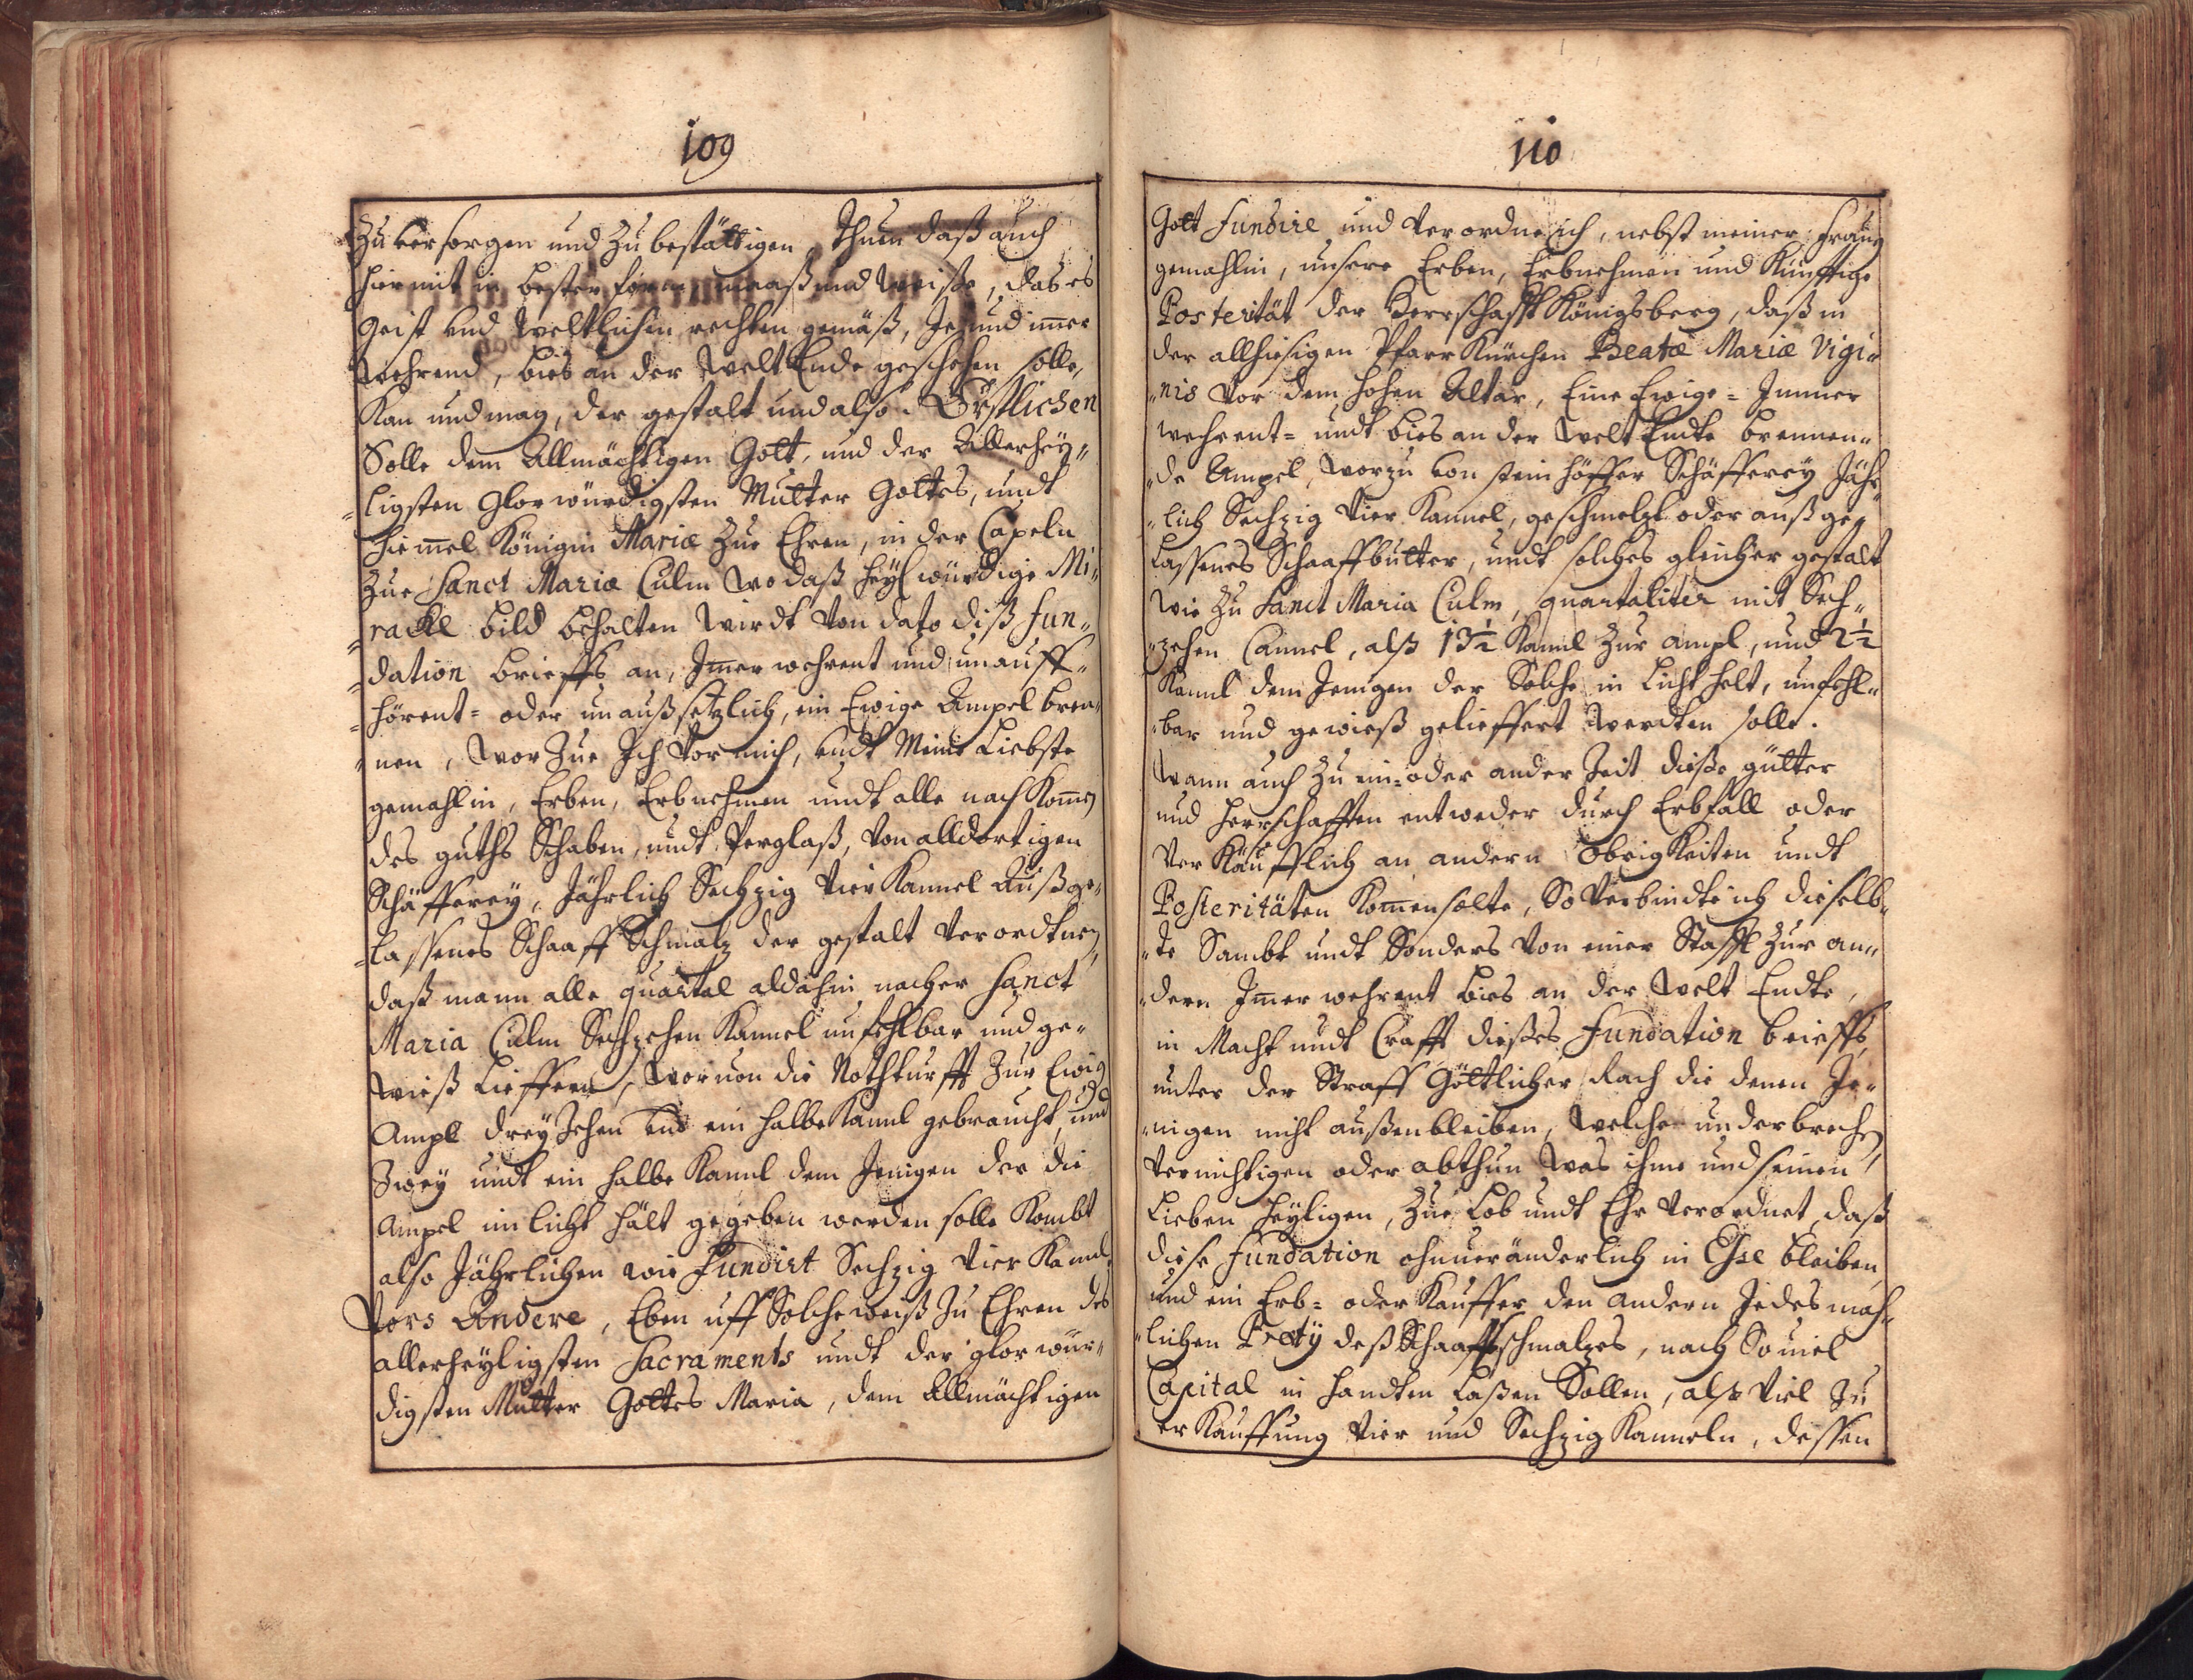 109
Zu versorgen und Zu bestättigen, Thuen daß auch
hiermit in bester form maaß und weiße, das es
Geist und Weltlichen rechten gemäß, Je und imer
wehrend, bies an der Welt Ende geschehen solle,
Kan und mag, der gestalt und also. Örstlichen
Solle dem Allmächtigen Gott, und der Allerhey„
„ligsten Glorwürdigsten Mutter Gottes, undt
Himmel Königin Mariæ Zue Ehren, in der Capeln
Zue Sanct Mariæ Culm wo daß heylwürdige Mi„
„rackl bild behalten wirdt von dato diß fun„
„dation brieffs an, Imer wehrent und unauff„
„hörent= oder unaußsetzlich, ein Ewige Ampel bren„
„nen, wor Zue Ich vor mich, undt Meine Liebste
gemahlin, Erben, Erbnehmen undt alle nach Komen
des guths Schaben, undt Perglaß, von alldortigen
Schäfferey, Jährlich Sechzig vier Kannel Außge„
„lassenes Schaaff Schmalz der gestalt verordtnen,
daß mann alle quartal aldahin nacher Sanct
Maria Culm Sechzehen Kannel unfehlbar und ge„
wieß Lieffern, Woruon die Nothturfft Zur Ewig
Ampl dreyzehen und ein halbe Kannl gebraucht, und
Zwey undt ein halbe Kannl dem Jenigen der die
Ampel im licht hält gegeben werden solle Kombt
also Jährlichen wie Fundirt Sechzig vier Kannl,
Vors Andere, Eben uff Solche weiß Zu Ehren des
allerheyligsten Sacraments undt der glorwür„
digsten Mutter Gottes Maria, dem Allmächtigen
110
Gott Fundire und verordne ich, nebst meiner Frauen
gemahlin, unsere Erben, Erbnehmen und Künfftige
Posterität der Herrschafft Königsberg, daß in
der allhiesigen Pfarr Kürchen Beatæ Mariæ Vigi„
„nis vor dem hohen Altar, Eine Ewige= Immer
wehrent= undt bies an der welt Endte brennen„
„de Ampel, worzu von steinhöffer Schäfferey Jähr„
„lich Sechzig vier Kannel, geschmelzt oder außge„
Lassenes Schaaffbutter, undt solches gleicher gestalt
wie Zu Sanct Maria Culm, quartaliter mit Sech„
„zehen Cannel, alß 13½ Kannl Zur ampl, und 2½
Kannl dem Jenigen der Solche in Licht helt, unfehl„
„bar und gewieß gelieffert werdten solle.
Wann auch Zu ein= oder ander Zeit dieße gütter
und Herrschafften entweder durch Erbfall oder
Ver Käufflich an andern Obrigkeiten undt
Posteritäten Komen solte, So Verbindte ich dieselb„
„te Sambt undt Sonders von einer Staffl Zur an„
„dern Imer wehrent bies an der Welt Endte,
in Macht undt Crafft dießes Fundation brieffs,
unter der Straff Göttlicher Rach die denen Je„
„nigen nicht außenbleiben, welche underbrechen,
vernichtigen oder abthun was ihme und seinen
Lieben Heyligen, Zue Lob undt Ehr verordnet, daß
diese Fundation ohnueränderlich in Esse bleiben
und ein Erb= oder Kauffer den andern Jedesmah„
„lichen Prætÿ deß Schaaffschmalzes, nach Souiel
Capital in handten Laßen Sollen, alß viel Zu
er Kauffung vier und Sechzig Kanneln, dessen